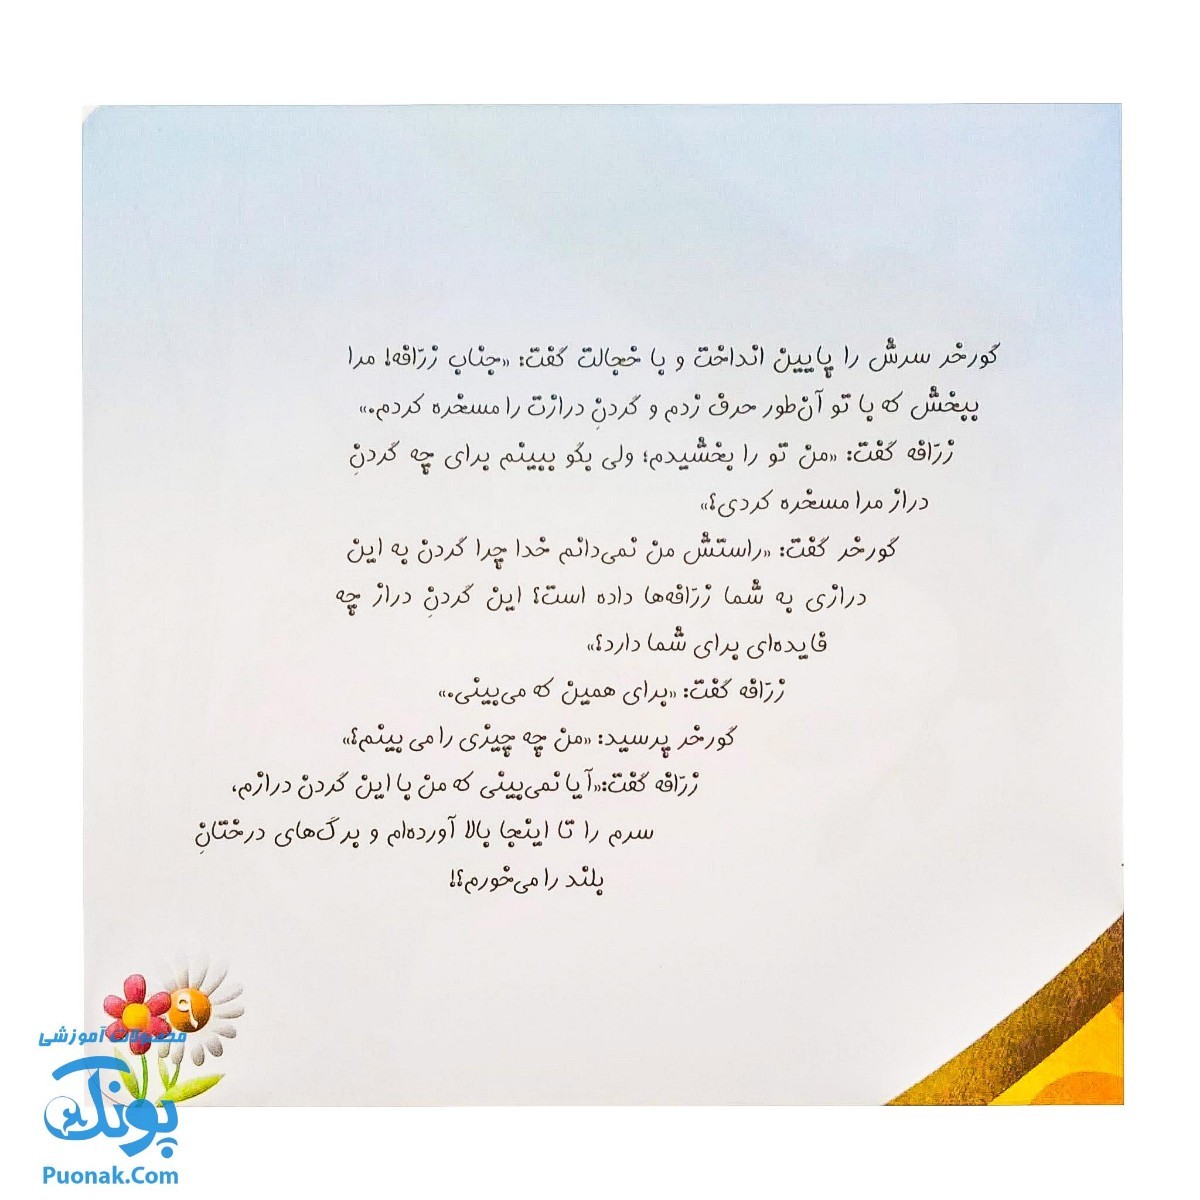 گورخر سرش را پایین انداخت و با خجالت گفت: «جناب زرّافه! مرا
ببخش که با تو آن‌طور حرف زدم و گردنِ درازت را مسخره کردم.»
زرّافه گفت: «من تو را بخشیدم؛ ولی بگو ببینم برای چه گردنِ
دراز مرا مسخره کردی؟»
گورخر گفت: «راستش من نمی‌دانم خدا چرا گردن به این
درازی به شما زرّافه‌ها داده است؟ این گردنِ دراز چه
فایده‌ای برای شما دارد؟»
زرّافه گفت: «برای همین که می‌بینی.»
گورخر پرسید: «من چه چیزی را می بینم؟»
زرّافه گفت:«آیا نمی‌بینی که من با این گردن درازم،
سرم را تا اینجا بالا آورده‌ام و برگ‌های درختانِ
بلند را می‌خورم؟!
۹
محصولات آموزشی
پونک
Puonak.Com